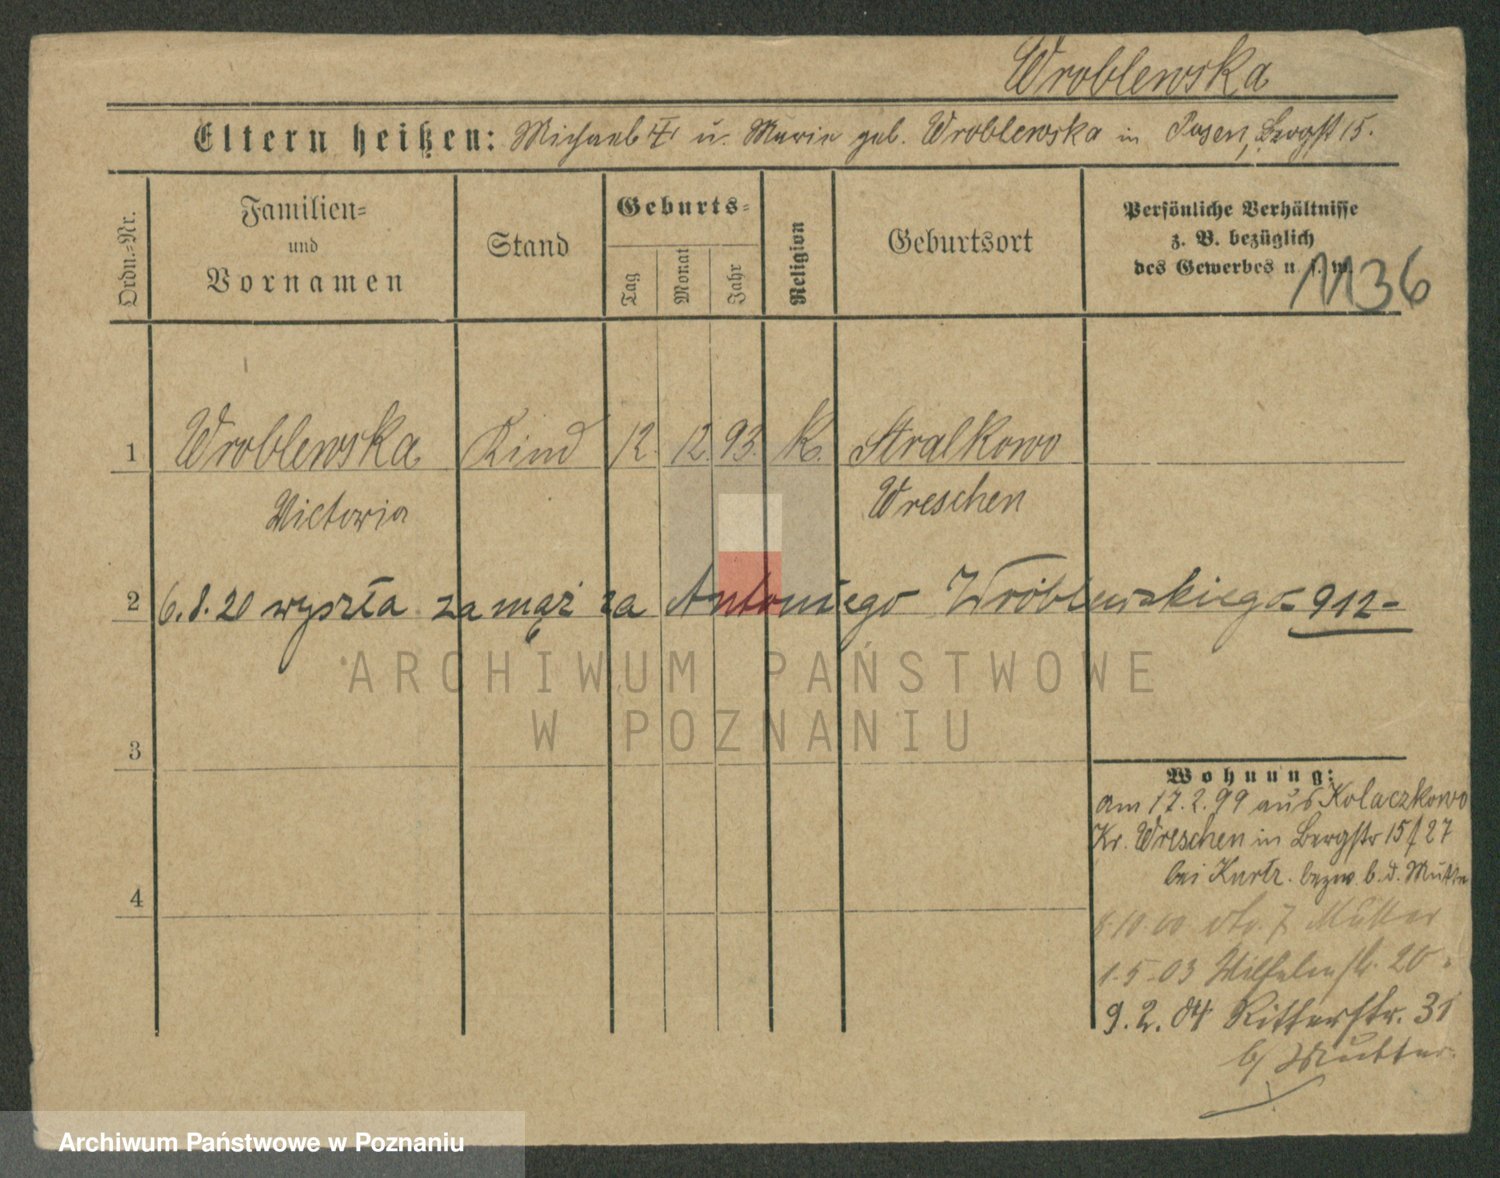 Wroblewska
Eltern heißen: Michael u. Marie geb. Wroblewska in Posen, Bergst 15.
Ordn.=Nr.
Familien=
und
Vornamen
Stand
Geburts=
Tag
Monat
Jahr
Religion
Geburtsort
Persönliche Verhältnisse
z. B. bezüglich
des Gewerbes u. s. w.
1136
1 Wroblewska Kind 12. 12. 93. K. Stralkowo
Victoria Wreschen
2 6.8.20 wyszła za mąż za Antoniego Wróblewskiego =912=
ARCHIWUM PAŃSTWOWE
W POZNANIU
3
Wohnung:
am 17.2.99 aus Kolaczkowo
Kr. Wreschen in Bergstr 15 / 27
bei bezw. b. d. Mutter
4
8.10.00 Mutter
1.5.03 Wilhelmstr. 20
9.2.04 Ritterstr. 31
b/ Mutter
Archiwum Państwowe w Poznaniu